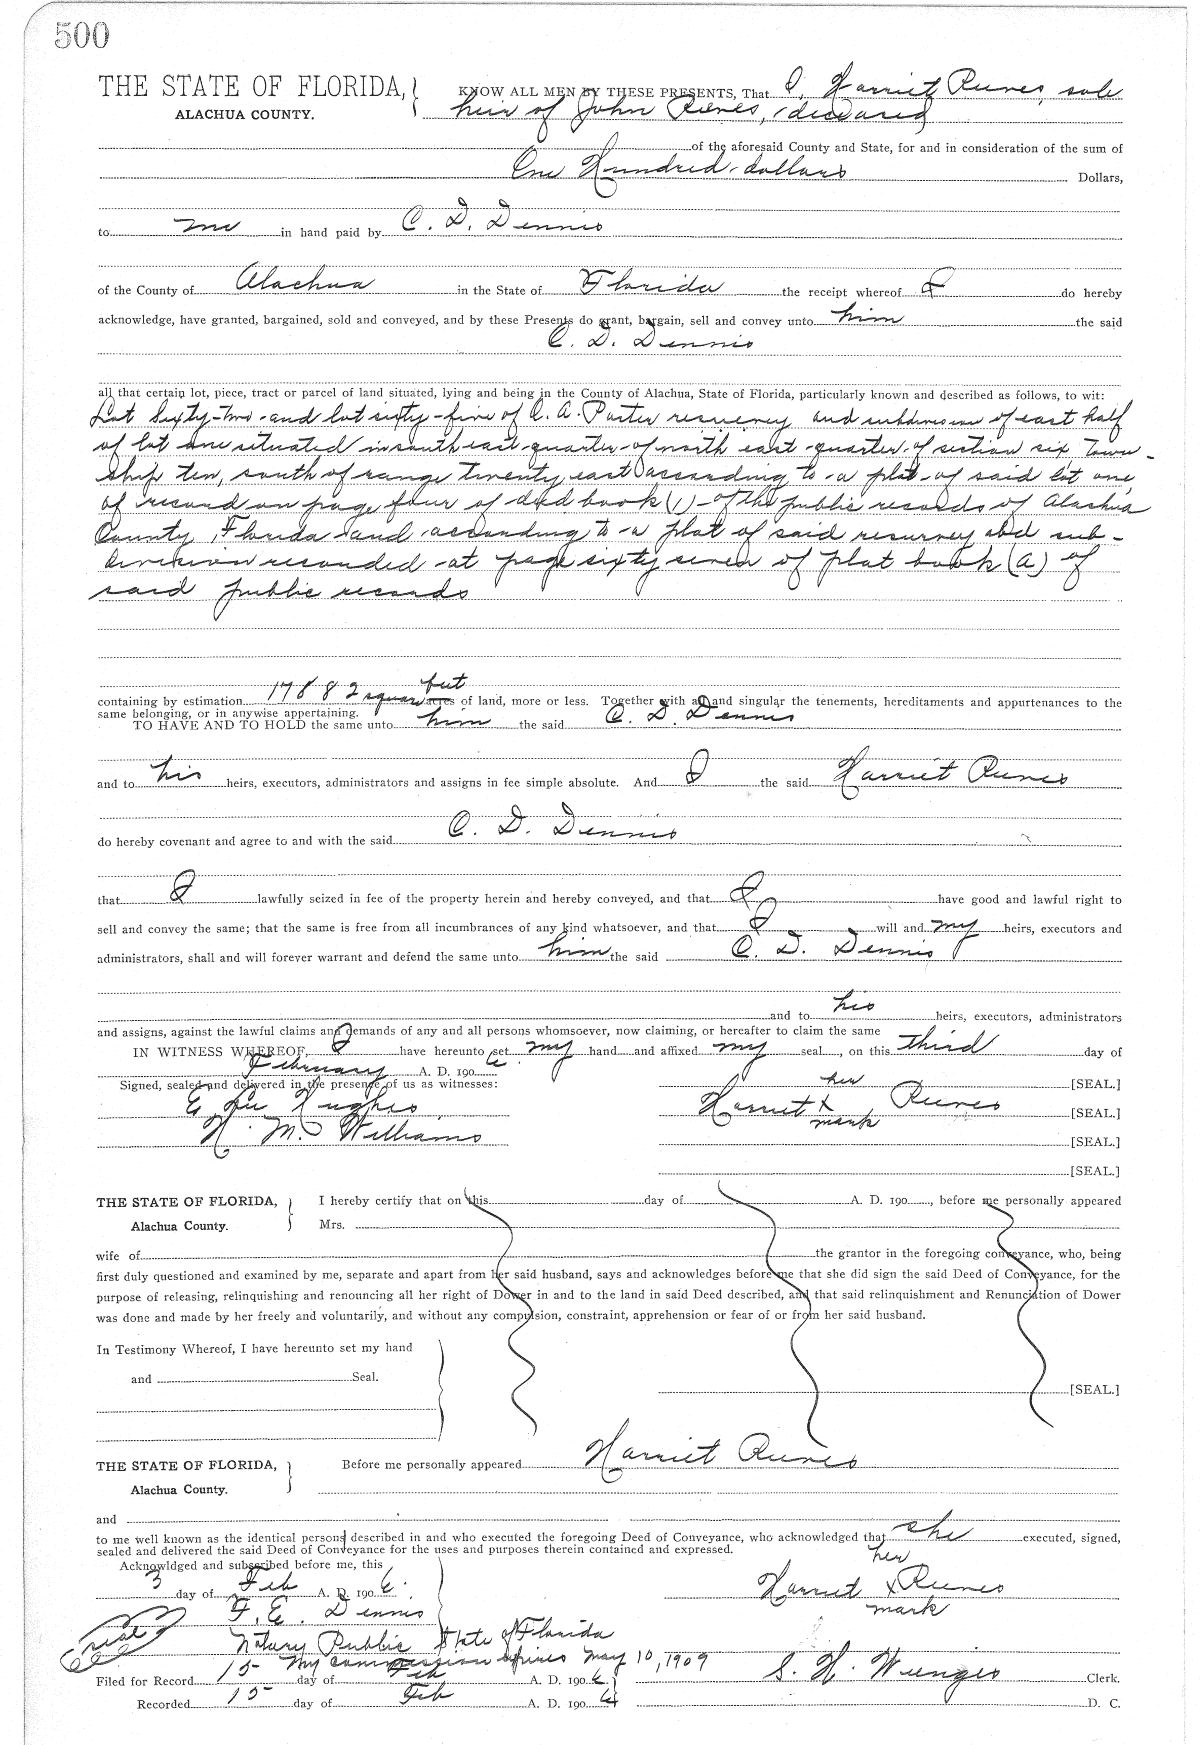 500
THE STATE OF FLORIDA, KNOW ALL MEN BY THESE PRESENTS, That I, Harriet Reeves, sole
ALACHUA COUNTY. heir of John Reeves, (deceased)
of the aforesaid County and State, for and in consideration of the sum of
One Hundred dollars Dollars,
to me in hand paid by C. D. Dennis
of the County of Alachua in the State of Florida the receipt whereof I do hereby
acknowledge, have granted, bargained, sold and conveyed, and by these Presents do grant, bargain, sell and convey unto him the said
C. D. Dennis
all that certain lot, piece, tract or parcel of land situated, lying and being in the County of Alachua, State of Florida, particularly known and described as follows, to wit:
Lot Sixty-two and lot sixty-five of C. A. Porter resurvey and subdivision of east half
of lot one situated in south east quarter of north east quarter of section six Town-
ship ten, south of range twenty east according to a plat of said lot one,
of record on page four of deed book (1) of the public records of Alachua
County, Florida and according to a plat of said resurvey and sub-
division recorded at page sixty seven of plat book (a) of
said public records
containing by estimation 17882 square feet acres of land, more or less. Together with all and singular the tenements, hereditaments and appurtenances to the
same belonging, or in anywise appertaining.
TO HAVE AND TO HOLD the same unto him the said C. D. Dennis
and to his heirs, executors, administrators and assigns in fee simple absolute. And I the said Harriet Reeves
do hereby covenant and agree to and with the said C. D. Dennis
that I lawfully seized in fee of the property herein and hereby conveyed, and that I have good and lawful right to
sell and convey the same; that the same is free from all incumbrances of any kind whatsoever, and that I will and my heirs, executors and
administrators, shall and will forever warrant and defend the same unto him the said C. D. Dennis
and to his heirs, executors, administrators
and assigns, against the lawful claims and demands of any and all persons whomsoever, now claiming, or hereafter to claim the same
IN WITNESS WHEREOF, I have hereunto set my hand and affixed my seal, on this third day of
February A. D. 1906
Signed, sealed and delivered in the presence of us as witnesses: her [SEAL.]
E Lee Hughes Harriet X Reeves [SEAL.]
mark
N. M. Williams [SEAL.]
[SEAL.]
THE STATE OF FLORIDA, I hereby certify that on this day of A. D. 190 , before me personally appeared
Alachua County. Mrs.
wife of the grantor in the foregoing conveyance, who, being
first duly questioned and examined by me, separate and apart from her said husband, says and acknowledges before me that she did sign the said Deed of Conveyance, for the
purpose of releasing, relinquishing and renouncing all her right of Dower in and to the land in said Deed described, and that said relinquishment and Renunciation of Dower
was done and made by her freely and voluntarily, and without any compulsion, constraint, apprehension or fear of or from her said husband.
In Testimony Whereof, I have hereunto set my hand
and Seal.
[SEAL.]
THE STATE OF FLORIDA, Before me personally appeared Harriet Reeves
Alachua County.
and
to me well known as the identical persons described in and who executed the foregoing Deed of Conveyance, who acknowledged that she executed, signed,
sealed and delivered the said Deed of Conveyance for the uses and purposes therein contained and expressed.
Acknowldged and subscribed before me, this her
3 day of Feb A. D. 1906. Harriet X Reeves
F. E. Dennis mark
(seal) Notary Public State of Florida
My commission expires May 10, 1909
Filed for Record 15 day of Feb A. D. 1906 S. H. Wienges Clerk.
Recorded 15 day of Feb A. D. 1906 D. C.